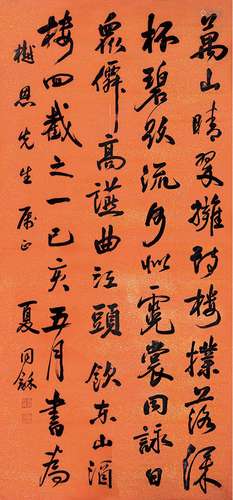 萬山晴翠擁詩樓撲落深
杯碧欲流何似霓裳同詠日
眾僊高讌曲江頭飲東山酒
樓四截之一己亥五月書爲
樾恩先生属正
夏同龢